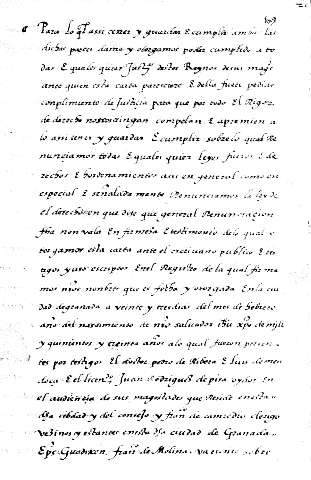 Para lo q̃l assi tener y guardar E cumplir amas las
dichas partes damos y otorgamos poder cumplido a to
das E qualesquier Justiçias destos Reynos de sus mage
ante quien esta carta paresçiere E della fuere pedido
conplimiento de Justicia para que por todo El Rigor
de derecho nos costringan conpelan E apremien a
lo ansi tener y guardar E cumplir sobre lo qual Re
nunçiamos todas E qualesquier leyes fueros E de
rechos E hordenamientos ansi en general como en
espeçial E señaladamente Renunçiamos la ley de
el derecho en que dize que general Renunçiaçion
fha non vala En firmeza E testimonio de lo qual o
torgamos esta carta ante el escrivano publico E tes
tigos yuso escriptos En el Registro de la qual firma
mos nros nonbres que es fecha y otorgada En la ciu
dad de granada a veinte y tres dias del mes de hebrero
año del nasçimiento de nro salvador ihũ xp̃o de mill
y quinientos y treinta años a lo qual fueron presen
tes por testigos El doctor pedro de Ribera E luis de men
doça E el licen.do Juan Rodriguez de pisa oydor En
el audiençia de sus magestades que Reside en esta
dha çibdad y del consejo y fran.co de camedio clerigo
vezinos y estantes en esta dha ciudad de Granada
fran.co de Molina va entre sobre